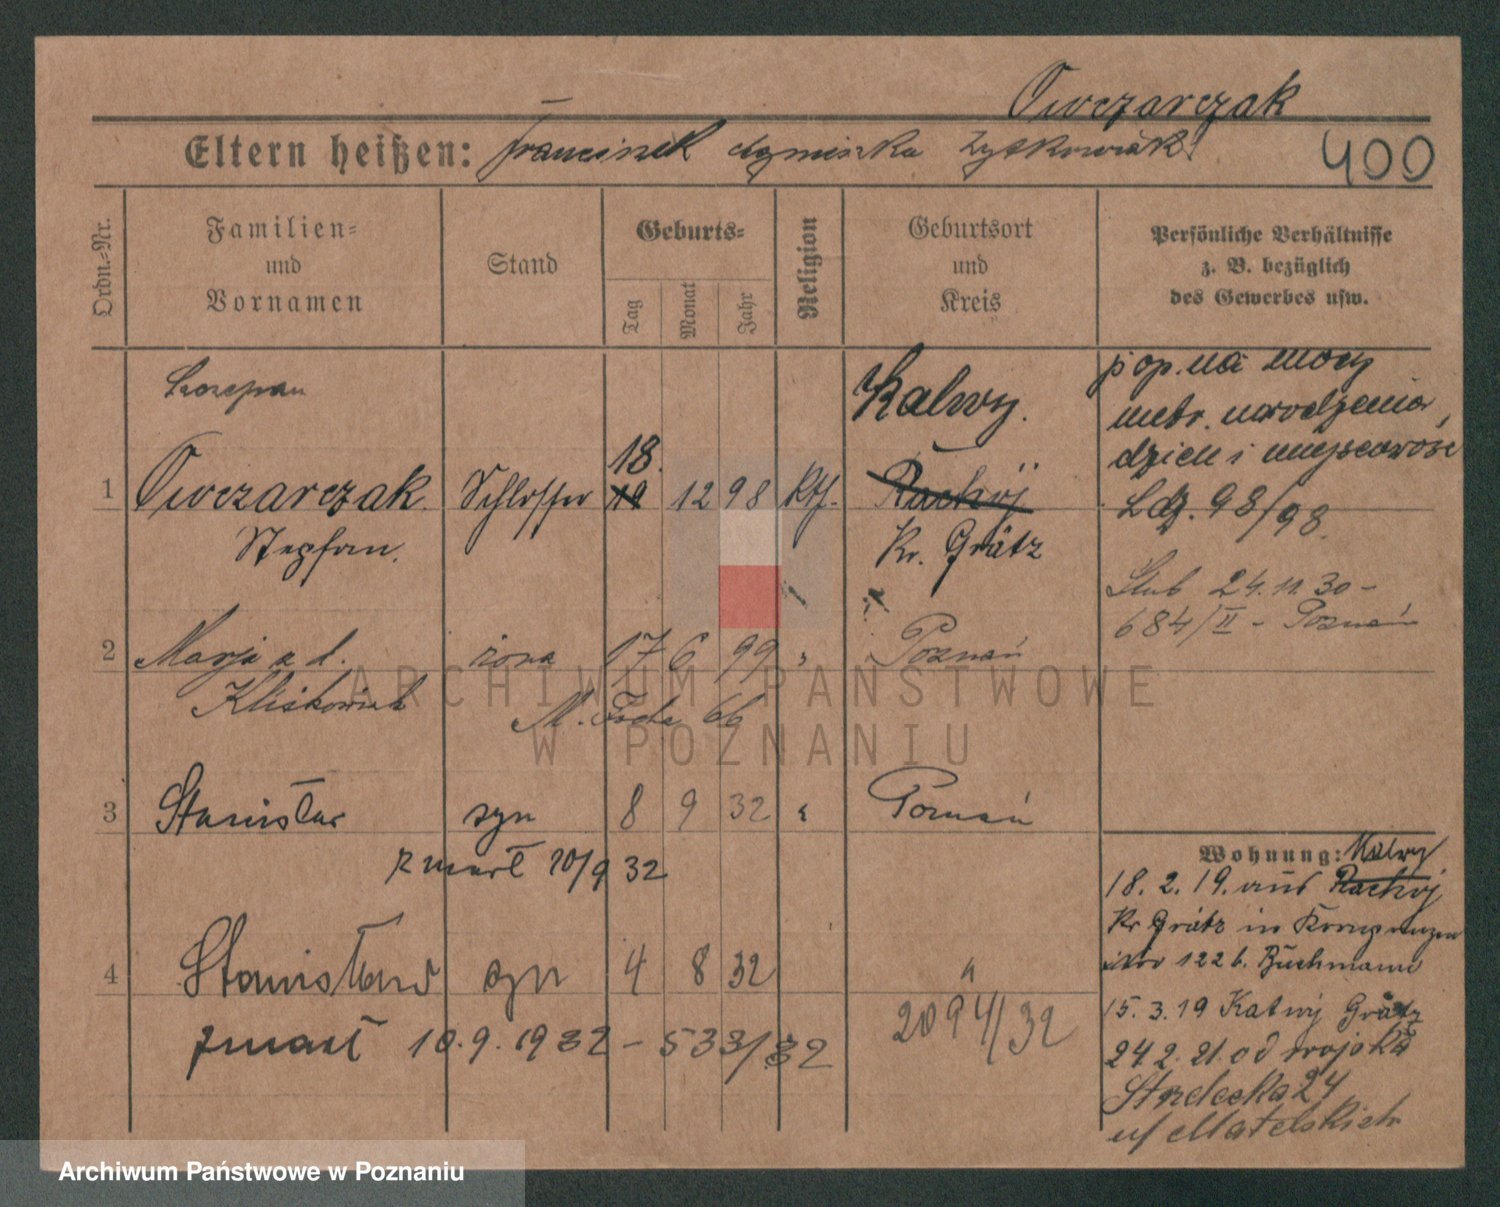 Owczarczak
Eltern heißen: Franciszek Agnieszka Żytkowiak
400
Ordn.-Nr.
Familien-
und
Vornamen
Stand
Geburts-
Tag
Monat
Jahr
Religion
Geburtsort
und
Kreis
Persönliche Verhältnisse
z. B. bezüglich
des Gewerbes usw.
Szczepan
Kalwy.
pop. na mocy
metr. urodzenia,
dzień i miejscowość
Ldz. 98/98.
18.
1 Owczarczak Schlosser 19 12 98 Kth. Rachój
Stephan. Kr. Grätz
Slub 24. 11. 30 -
684/II - Poznań
2 Marja z d. żona 17 6 99 " Poznań
M. Focha 66
3 Stanisław syn 8 9 32 " Poznań
zmarł 10/9 32
4 Stanisław syn 4 8 32 "
zmarł 10. 9. 1932 - 533/32
2094/32
Wohnung: Kalwy
18. 2. 19. aus Rachój
Kr Grätz in
122 b. Buchmann
15. 3. 19 Kalwy Grätz
24 2. 21. od wojska
Strzelecka 24
u/ Matelskich
ARCHIWUM PAŃSTWOWE
W POZNANIU
Archiwum Państwowe w Poznaniu